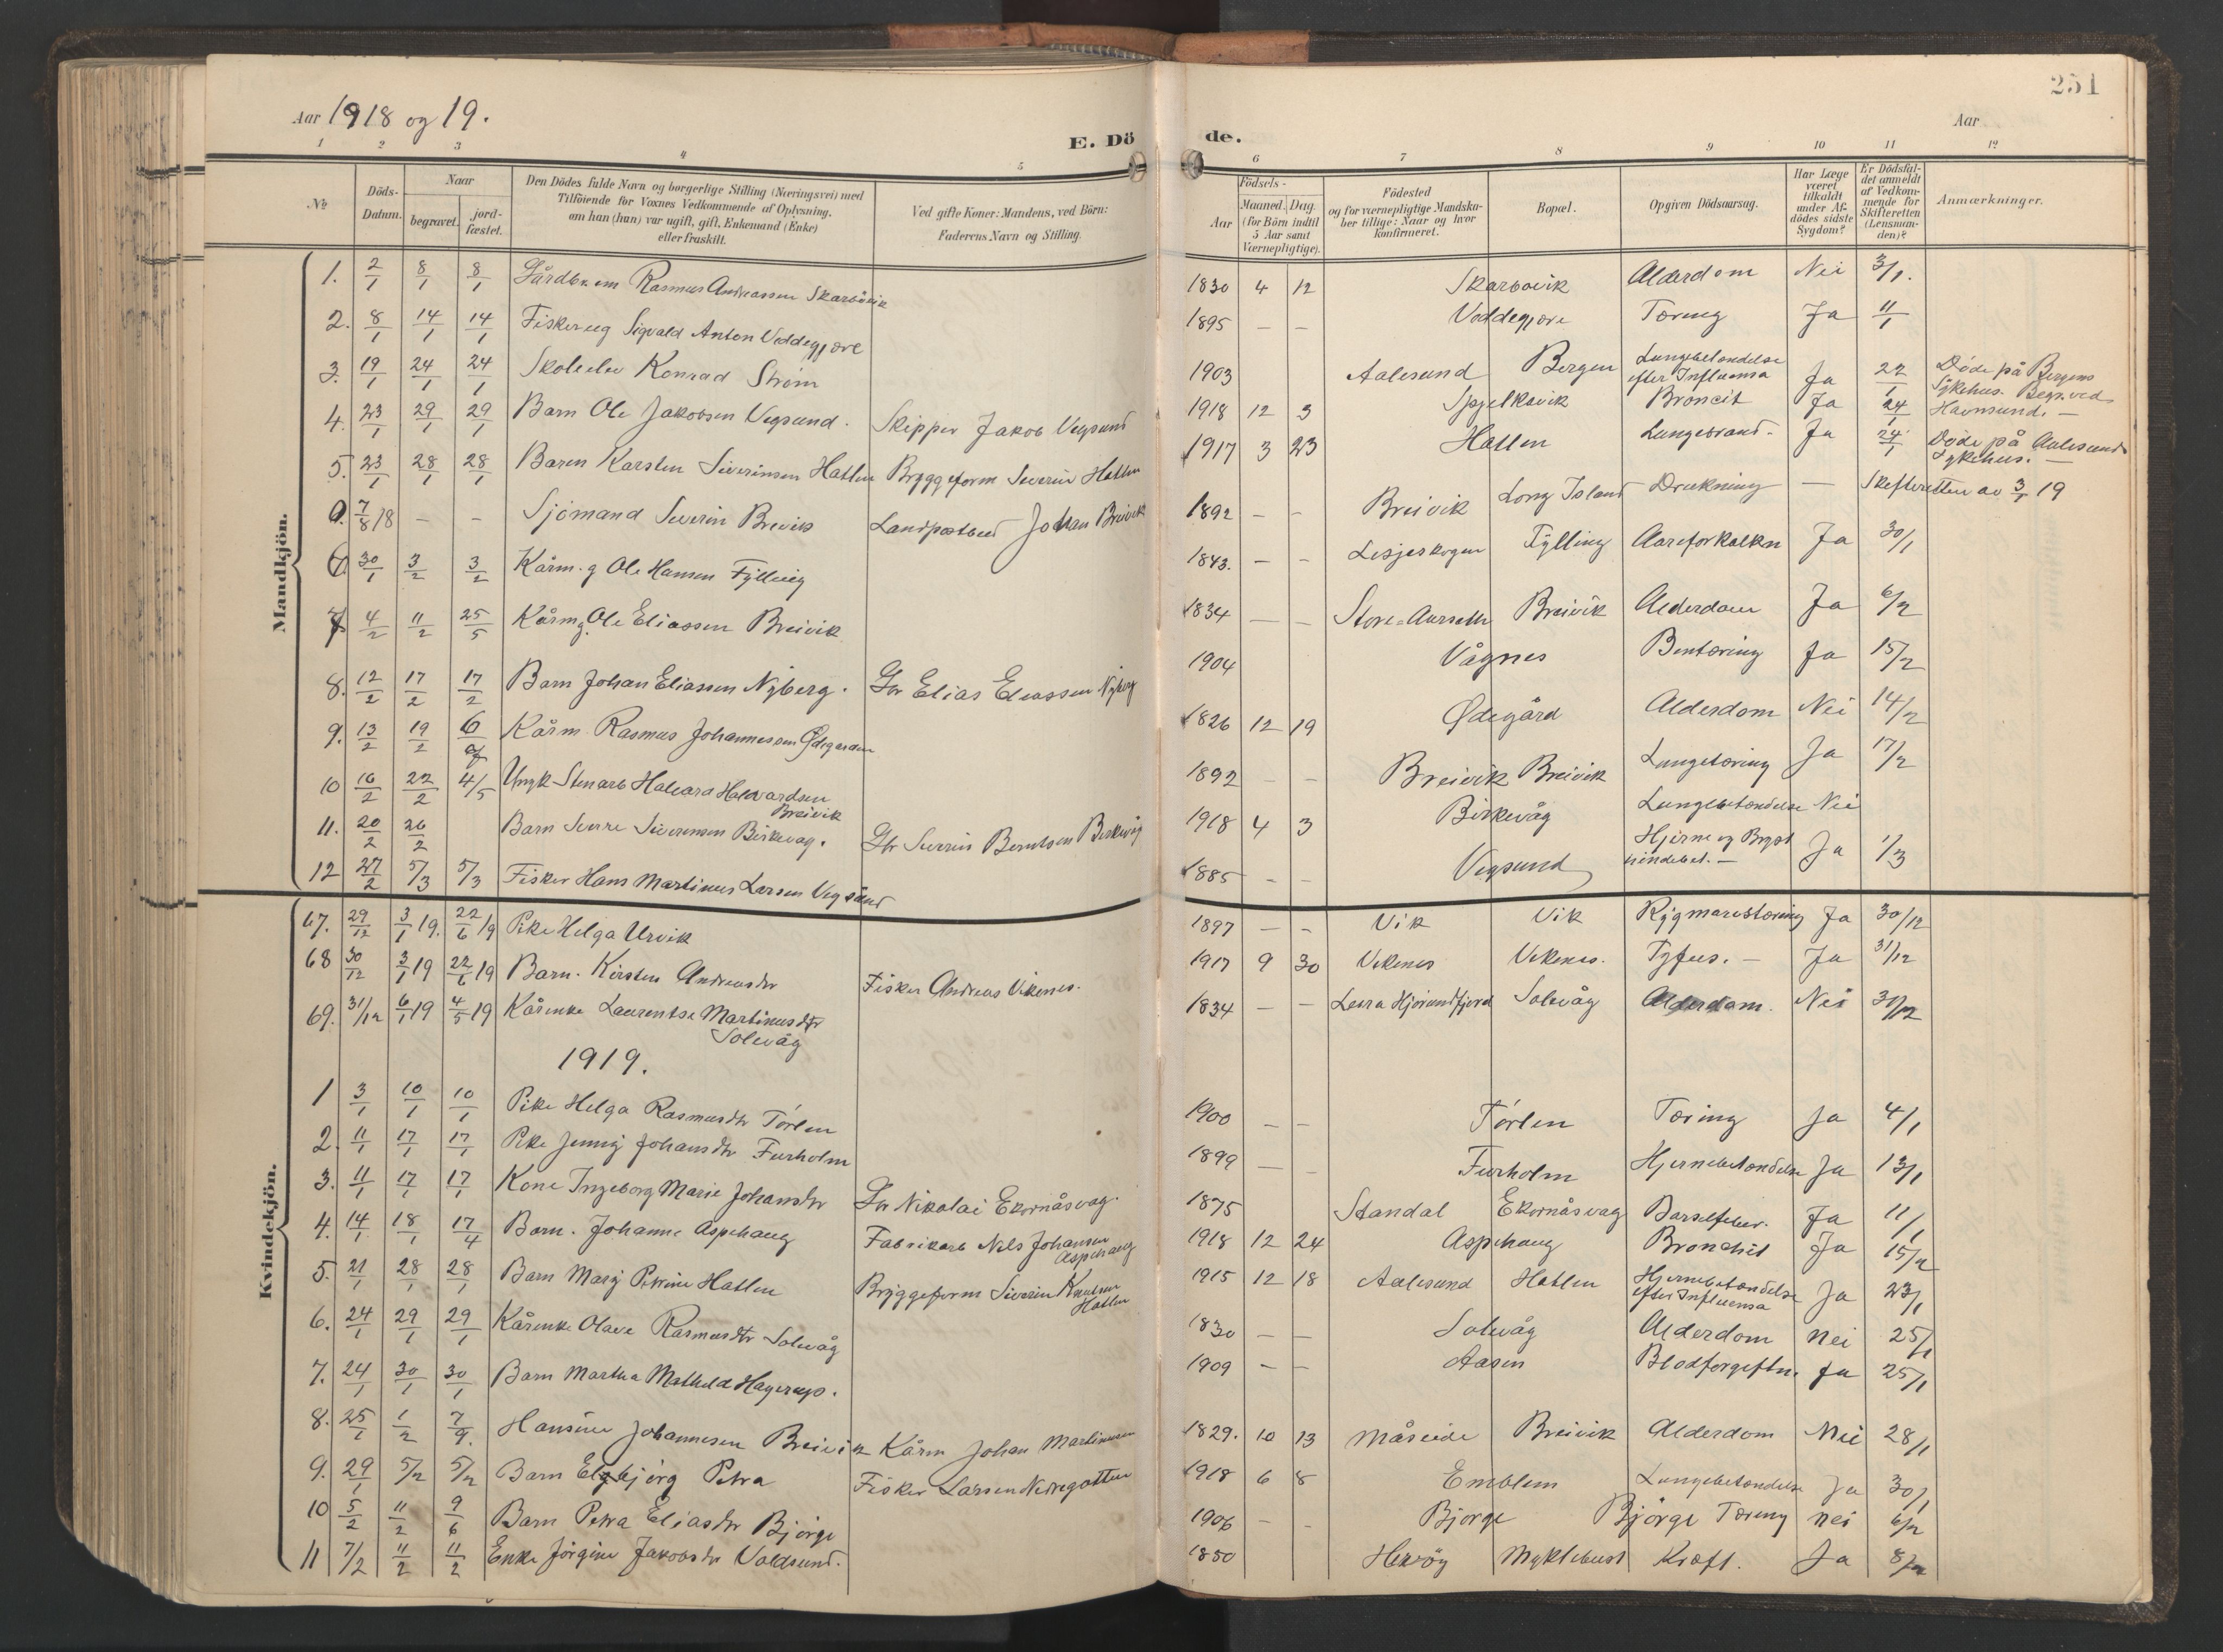 251
Aar 1918 og 19.
E. Döde.
Aar
1 2 3 4 5 6 7 8 9 10 11 12
№
Döds-Datum.
Naar
begravet.
jord-fæstet.
Den Dödes fulde Navn og borgerlige Stilling (Næringsvei) med
Tilföiende for Voxnes Vedkommende af Oplysning,
om han (hun) var ugift, gift, Enkemand (Enke)
eller fraskilt.
Ved gifte Koner: Mandens, ved Börn:
Faderens Navn og Stilling.
Födsels-
Aar
Maaned. Dag.
(for Börn indtil
5 Aar samt
Værnepligtige).
Födested
og for værnepligtige Mandska-
ber tillige: Naar og hvor
konfirmeret.
Bopæl.
Opgiven Dödsaarsag.
Har Læge
været
tilkaldt
under Af-
dödes sidste
Sygdom?
Er Dödsfal-
det anmeldt
af Vedkom-
mende for
Skifteretten
(Lensman-
den)?
Anmærkninger.
Mandkjön.
1. 2/1 8/1 8/1 Rasmus Andreassen Skarbövik 1830 4 12 Skarbovik Alderdom Nei 3/1.
2. 8/1 14/1 14/1 Sigvald Anton Veddegjære 1895 – – Veddegjære Tæring Ja 11/1
3. 19/1 24/1 24/1 Skoleelev Konrad Ström 1903 Aalesund Bergen Lungebetændelse efter Influensa Ja 22/1 Döde på Bergens Sykehus. Begr. ved
4. 23/1 29/1 29/1 Barn Ole Jakobsen Vegsund. Skipper Jakob Vegsund 1918 12 3 Spjelkavik Broncit Ja 24/1 Havnsund. –
5. 23/1 28/1 28/1 Barn Karsten Siverinsen Hatlen Bryggeform Severin Hatlen 1917 3 23 Hatlen Lungebrand. Ja 24/1 Döde på Aalesund Sykehus. –
0. 7/8 18 – – Sjömand Severin Breivik Landpostbud Johan Breivik 1892 – – Breivik Long Island Drukning – Skifteretten av 3/1 19
6. 30/1 3/2 3/2 Kårm. g Ole Hansen Fylling 1843. – – Lesjeskogen Fylling Aareforkalkn Ja 30/1
7 4/2 11/2 25/5 Kårm g. Ole Eliassen Breivik 1834 – – Store-Aurseth Breivik Alderdom Ja 6/2
8. 12/2 17/2 17/2 Barn Johan Eliassen Nyberg. Gbr Elias Eliassen Nyberg 1904 Vågnes Bentæring Ja 15/2
9. 13/2 19/2 Kårm. Rasmus Johannessen Ødegården 1826 12 19 Ødegård Alderdom Nei 14/2
10 16/2 22/2 4/5 Ungk Stenarb Halvard Halvardsen Breivik 1892 – – Breivik Breivik Lungetæring Ja 17/2
11. 20/2 26/2 Barn Sverre Siverinsen Birkevåg. Gbr Severin Berntsen Birkevåg 1918 4 3 Birkevåg Lungebetændelse Nei
12 27/2 5/3 5/3 Fisker Hans Martinus Larsen Vegsund 1885 – – Vegsund Hjerne og Bryst hindebet. – Ja 1/3
Kvindekjön.
67. 29/12 3/1 19. 22/6 19 Pike Helga Urvik 1897 – – Vik Vik Rygmarvstæring Ja 30/12
68 30/12 3/1 19 22/6 19 Barn. Kirsten Andreasdtr Fisker Andreas Vikenes. 1917 9 30 Vikenes Vikenes. Tyfus. – Ja 31/12
69. 31/12 6/1 19 4/5 19 Kårenke Laurentse Martinusdtr Solevåg 1834 – – Hjörundfjord Solevåg Alderdom. Nei 31/12
1919.
1 3/1 10/1 10/1 Pike Helga Rasmusdtr Törlen 1900 – – Törlen Tæring Ja 4/1
2. 11/1 17/1 17/1 Pike Jenny Johansdtr Furholm 1899 – – Furholm Hjernebetændelse Ja 13/1
3. 11/1 17/1 17/1 Kone Ingeborg Marie Johansdtr Gbr Nikolai Ekornåsvag. 1875 Standal Ekornåsvag Barselfeber. Ja 11/1
4. 14/1 18/1 17/4 Barn. Johanne Aspehaug Fabrikarb Nils Johansen Aspehaug 1918 12 24 Aspehaug Bronchit Ja 15/2
5. 21/1 28/1 28/1 Barn Mary Petrine Hatlen Bryggeform Siverin Knutsen Hatlen 1915 12 18 Aalesund Hatlen Hjernebetændelse efter Influensa Ja 23/1
6. 24/1 29/1 29/1 Kårenke Olave Rasmusdtr Solevåg 1830 – – Solevåg Alderdom nei 25/1
7. 24/1 30/1 30/1 Barn Martha Mathilde Hagerup. 1909 – – Aasen Blodforgiftn. Ja 25/1
8. 25/1 1/2 7/9. Hansine Johannesen Breivik Kårm Johan Martinsen 1829. 10 13 Måseide Breivik Alderdom Nei 28/1
9. 29/1 5/2 5/2 Barn Petra Fisker Larsen Nedregotten 1918 6 8 Emblem Lungebetændelse Ja 30/1
10 5/2 11/2 9/6 Barn Petra Eliasdtr Bjørge 1906 – – Bjørge Bjørge Tæring nei 6/2
11 7/2 11/2 11/2 Enke Jørgine Jakobsdtr Valdsund. 1850 Herøy Myklebust Kræft. Ja 8/2